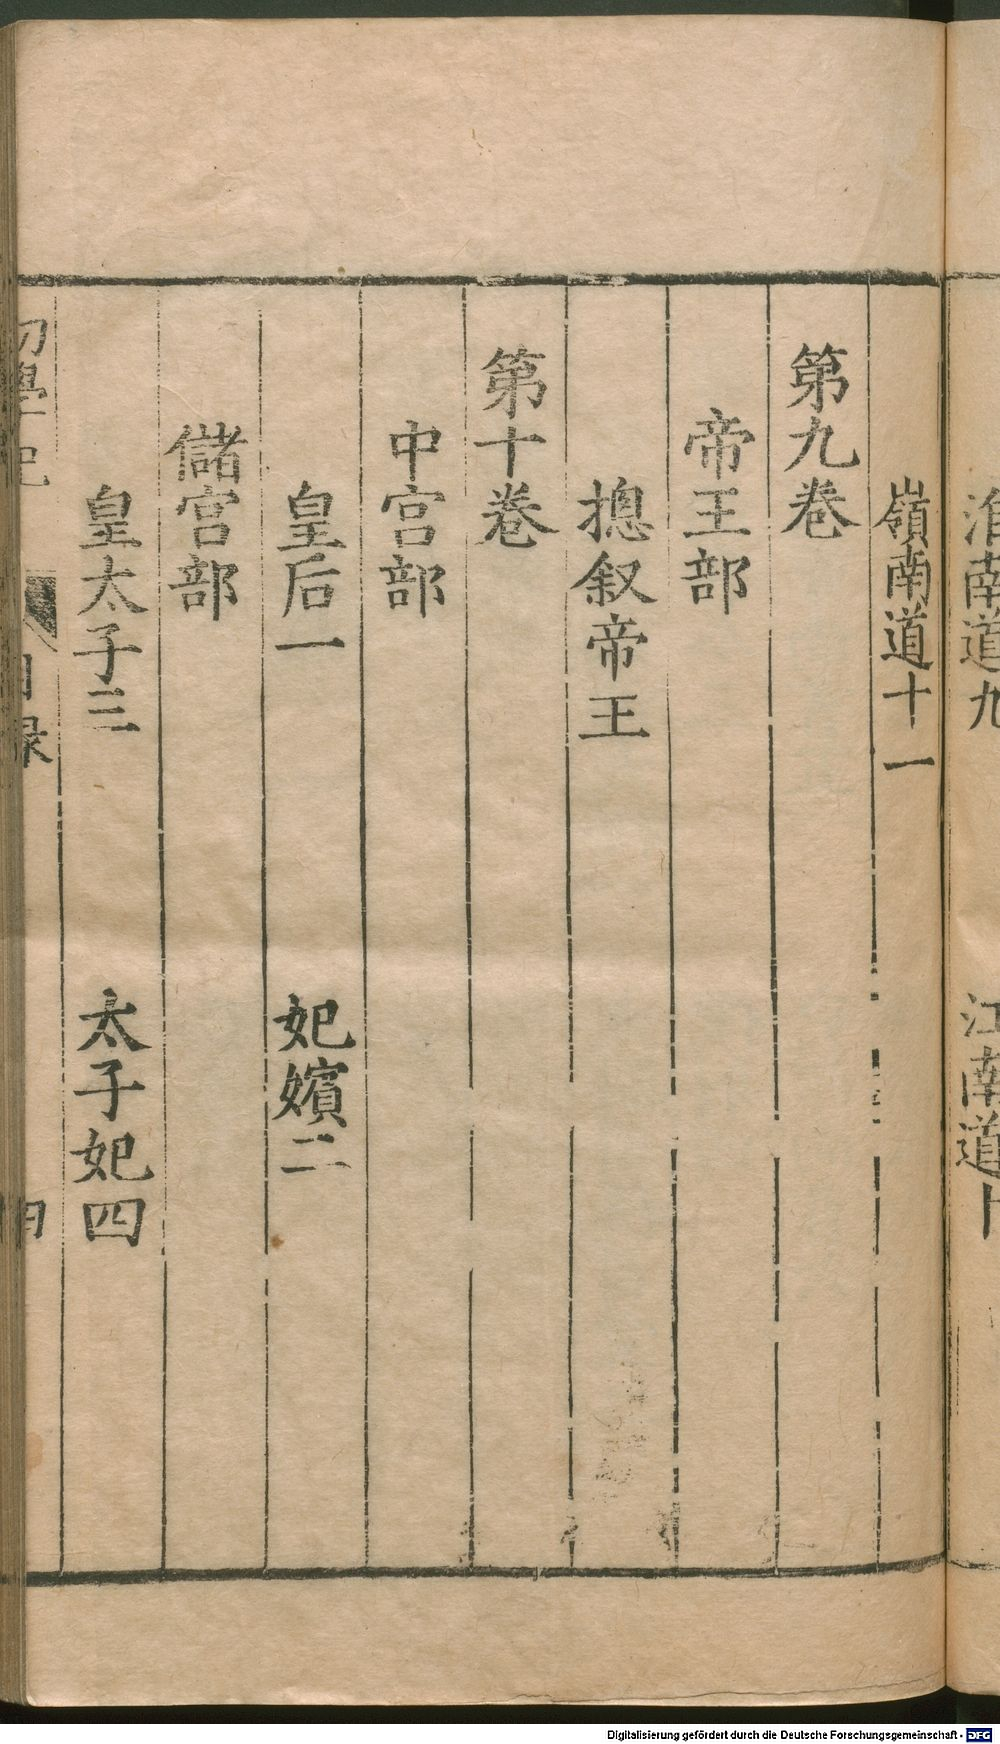 淮南道九　江南道十
嶺南道十一
第九卷
帝王部
摠叙帝王
第十卷
中宫部
皇后一　妃嬪二
儲宫部
皇太子三　太子妃四
初學記　目録　四
Digitalisierung gefördert durch die Deutsche Forschungsgemeinschaft - DFG